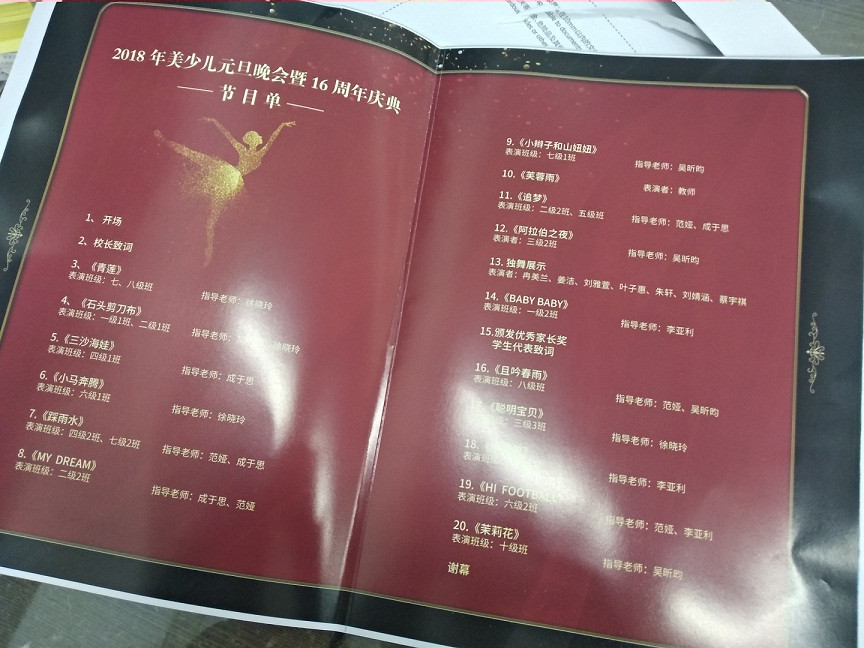 2018 年美少儿元旦晚会暨 16 周年庆典
节目单
1、 开场
2、校长致词
3、《青莲》
表演班级：七、八级班
指导老师：徐晓玲
4、《石头剪刀布》
表演班级：一级1班、二级1班
指导老师：徐晓玲
5、《三沙海娃》
表演班级：四级1班
指导老师：成于思
6、《小马奔腾》
表演班级：六级1班
指导老师：徐晓玲
7、《踩雨水》
表演班级：四级2班、七级2班
指导老师：范娅、成于思
8、《MY DREAM》
表演班级：二级2班
指导老师：成于思、范娅
9.《小辫子和山妞妞》
表演班级：七级1班
指导老师：吴昕昀
10.《芙蓉雨》
表演者：教师
11.《追梦》
表演班级：二级2班、五级班
指导老师：范娅、成于思
12.《阿拉伯之夜》
表演者：三级2班
指导老师：吴昕昀
13. 独舞展示
表演者：冉美兰、姜洁、刘雅萱、叶子惠、朱轩、刘婧涵、蔡宇祺
14.《BABY BABY》
表演班级：一级2班
指导老师：李亚利
15.颁发优秀家长奖
学生代表致词
16.《且吟春雨》
表演班级：八级班
指导老师：范娅、吴昕昀
《聪明宝贝》
三级3班
指导老师：徐晓玲
18.
指导老师：李亚利
19.《HI FOOTBALL
表演班级：六级2班
指导老师：范娅、李亚利
20.《茉莉花》
表演班级：十级班
指导老师：吴昕昀
谢幕